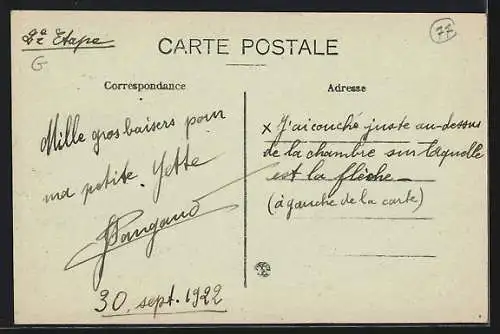 2e Etape
77
G
CARTE POSTALE
Correspondance
Adresse
Mille gros baisers pour
ma petite Yette
30 sept. 1922
x J'ai couché juste au-dessus
de la chambre sur laquelle
est la flèche
(à gauche de la carte)